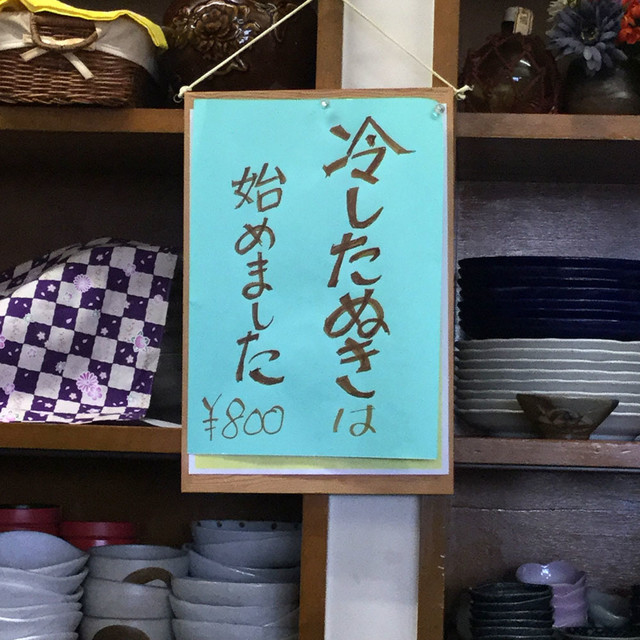 冷したぬきは
始めました
¥800